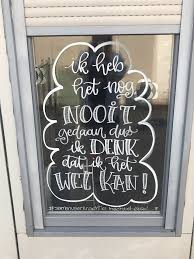 ik heb
het nog
NOOIT
gedaan, dus
ik DENK
dat ik het
WEL KAN!